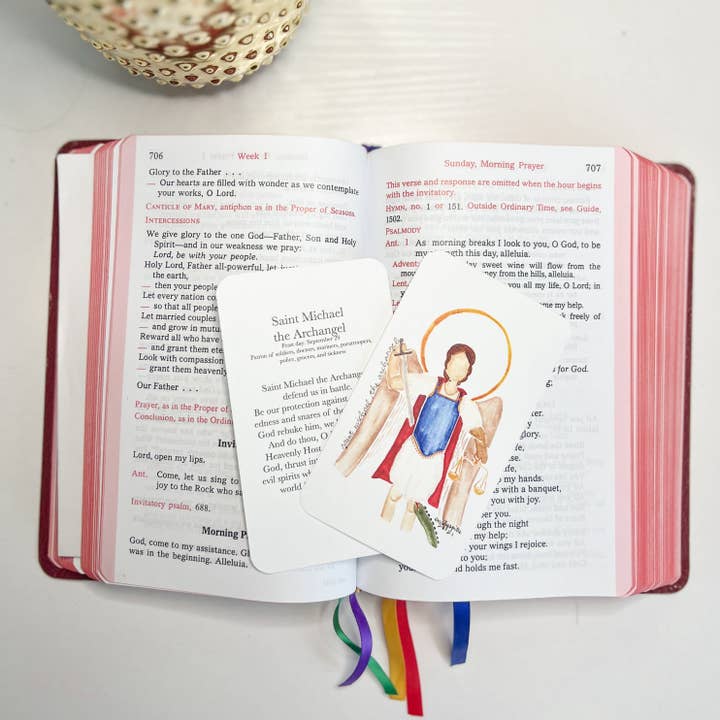 706
Week I
Glory to the Father . . .
— Our hearts are filled with wonder as we contemplate
your works, O Lord.
CANTICLE OF MARY, antiphon as in the Proper of Seasons.
INTERCESSIONS
We give glory to the one God—Father, Son and Holy
Spirit—and in our weakness we pray:
Lord, be with your people.
Holy Lord, Father all-powerful, let
the earth,
— then your people
Let every nation
— so that all people
Let married couples
— and grow in
Reward all who have
— and grant them
Look with compassion
— grant them heavenly
Our Father . . .
Prayer, as in the Proper of
Conclusion, as in the
Lord, open my lips.
Ant. Come, let us sing to
joy to the Rock who
Invitatory psalm, 688.
Morning
God, come to my assistance.
was in the beginning. Alleluia.
Sunday, Morning Prayer
707
This verse and response are omitted when the hour begins
with the invitatory.
HYMN, no. 1 or 151. Outside Ordinary Time, see Guide,
1502.
PSALMODY
Ant. 1 As morning breaks I look to you, O God, to be
my strength this day, alleluia.
sweet wine will flow from the
from the hills, alleluia.
you all my life, O Lord; in
me help.
freely of
for God.
glory.
life,
my hands.
as with a banquet,
you with joy.
through the night
my help;
your wings I rejoice.
and holds me fast.
Saint Michael
the Archangel
Feast day: September 29
Patron of soldiers, doctors, mariners, paratroopers,
police, grocers, and sickness
Saint Michael the Archangel
defend us in battle.
Be our protection against
edness and snares of the
God rebuke him, we
And do thou, O
Heavenly Host
God, thrust
evil spirits
world